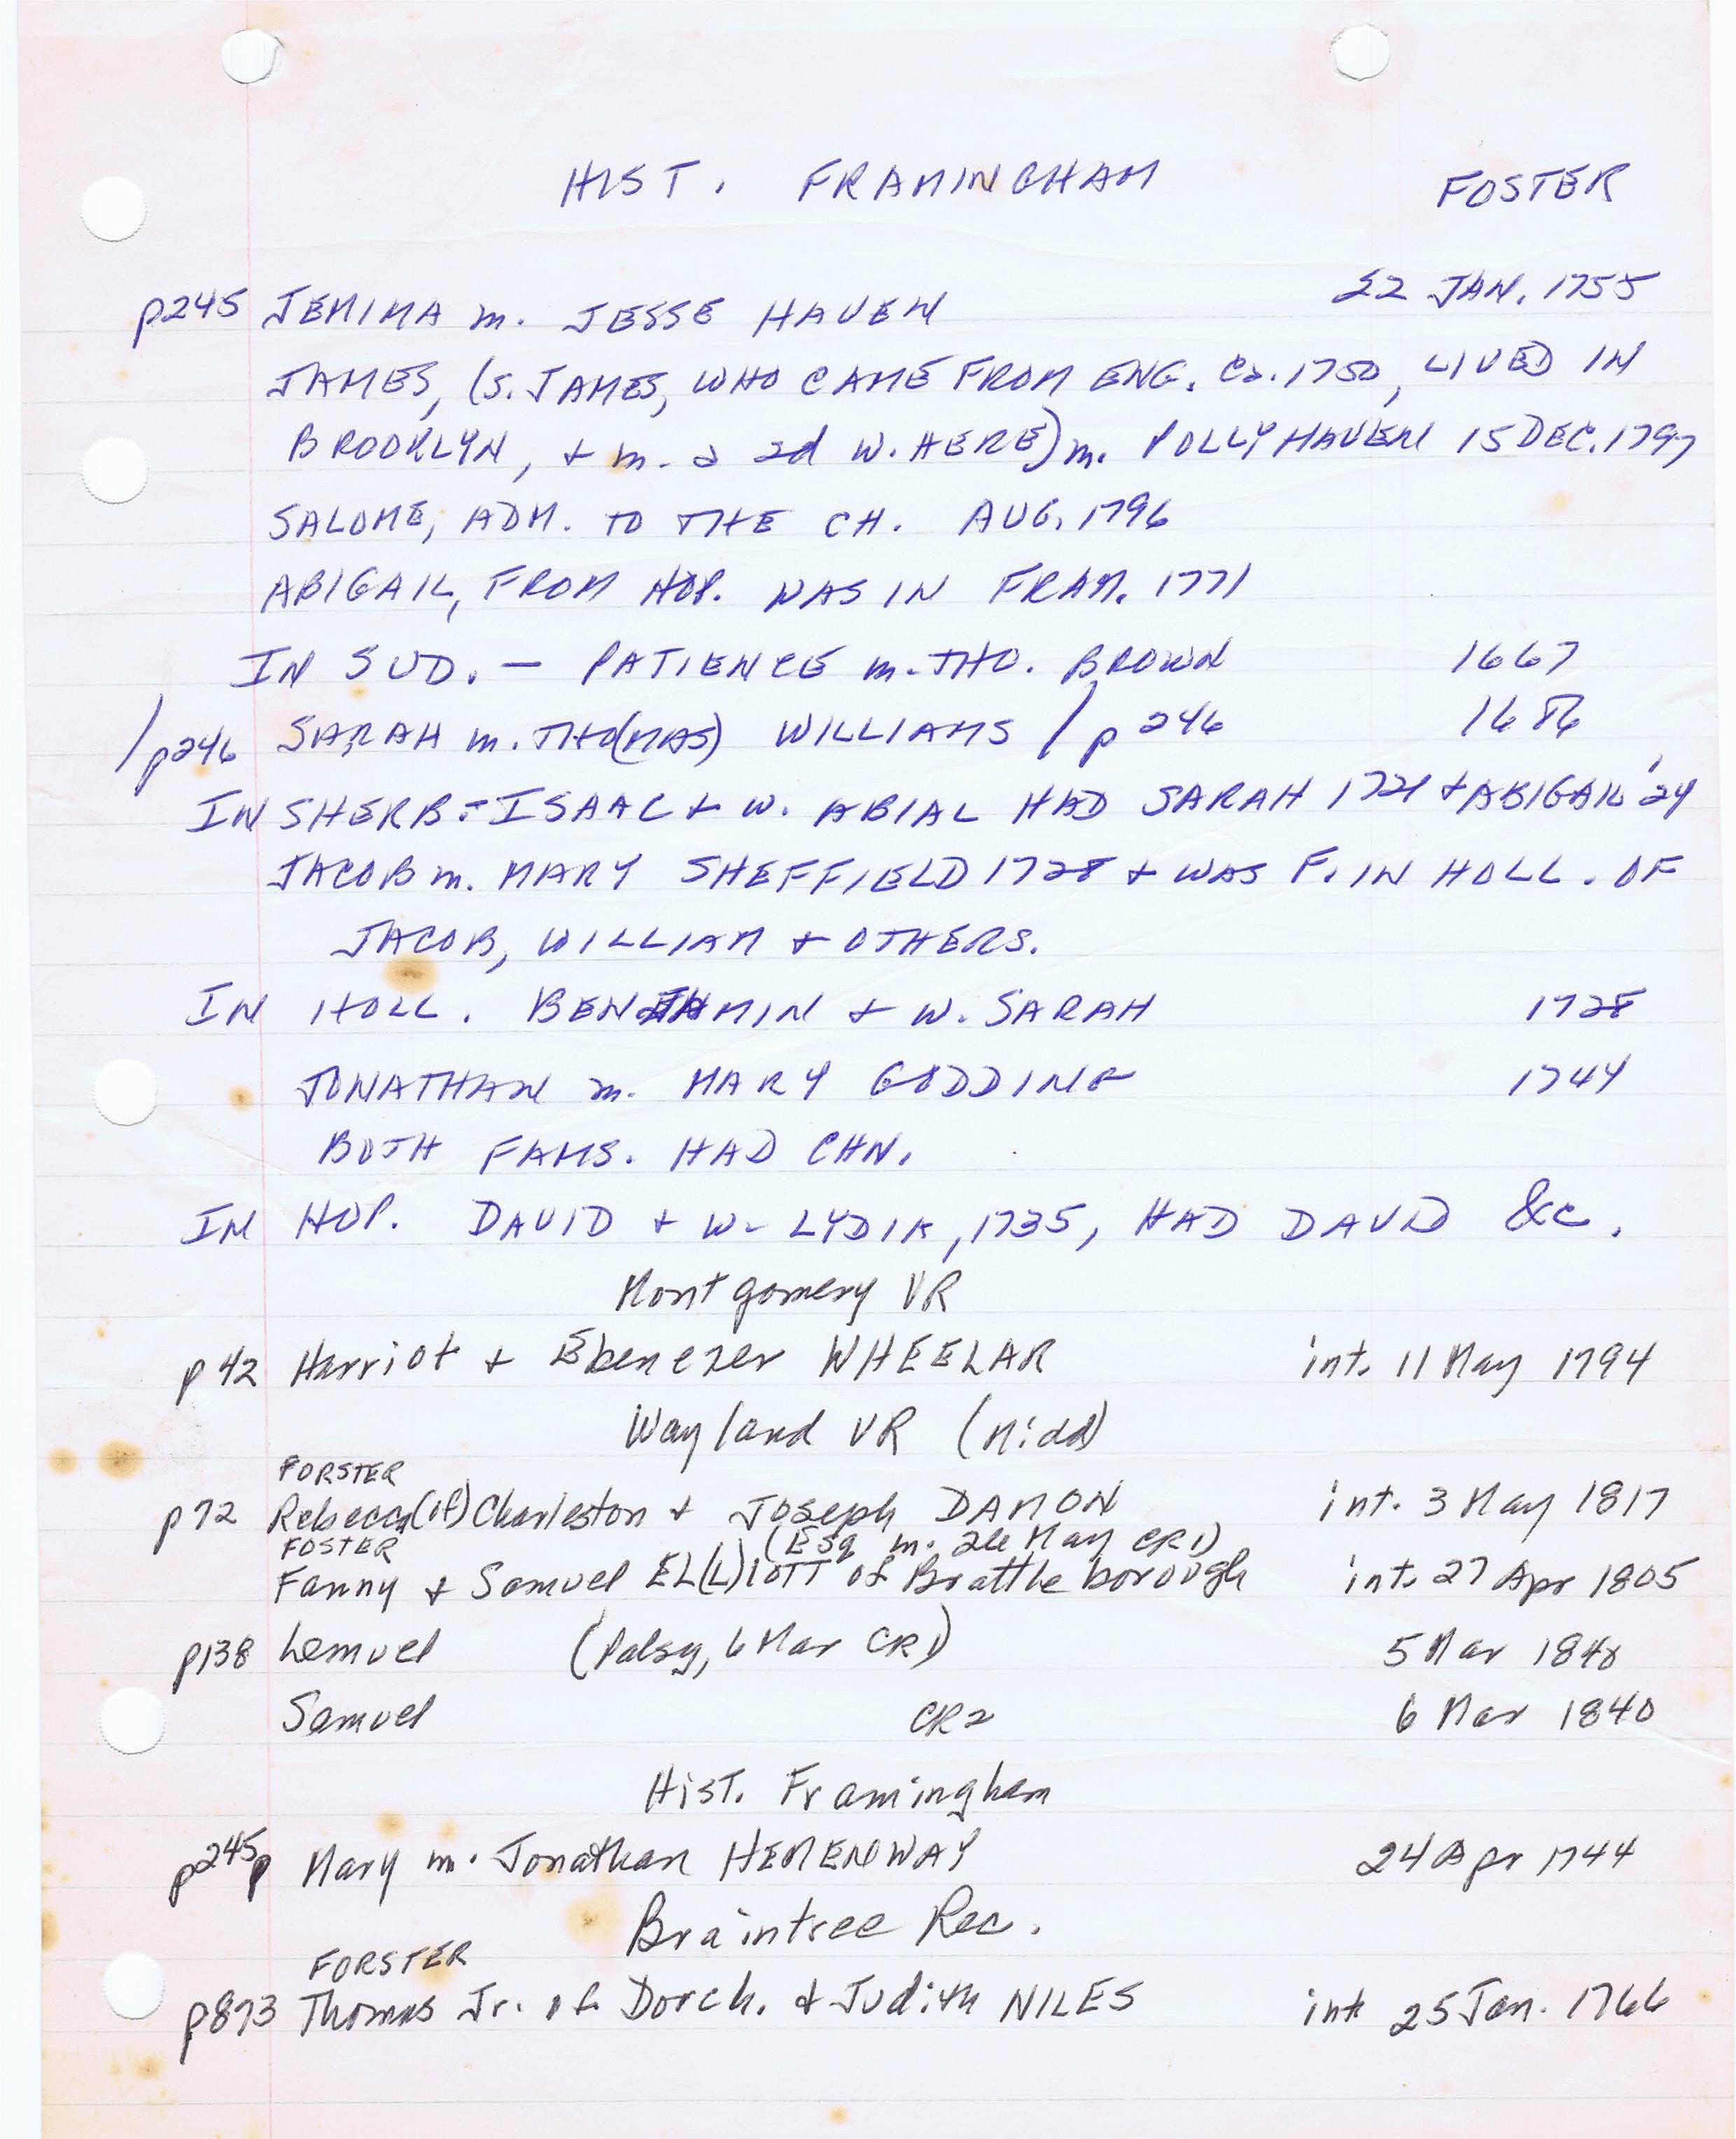 HIST. FRAMINGHAM FOSTER
p245 JEMIMA m. JESSE HAVEN 22 JAN. 1755
JAMES, (S. JAMES, WHO CAME FROM ENG. Ca. 1750, LIVED IN
BROOKLYN, + m. a 2d W. HERE) m. POLLY HAVEN 15 DEC. 1797
SALOME, ADM. TO THE CH. AUG, 1796
ABIGAIL, FROM HOP. WAS IN FRAM. 1771
IN SUD. — PATIENCE m. THO. BROWN 1667
/p246 SARAH m. THO(MAS) WILLIAMS / p 246 1686
IN SHERB - ISAAC + W. ABIAL HAD SARAH 1721 + ABIGAIL '24
JACOB m. MARY SHEFFIELD 1728 + WAS F. IN HOLL. OF
JACOB, WILLIAM + OTHERS.
IN HOLL. BENJAMIN + W. SARAH 1728
JONATHAN m. MARY GODDING 1744
BOTH FAMS. HAD CHN.
IN HOP. DAVID + W. LYDIA, 1735, HAD DAVID &c.
Montgomery VR
p 42 Harriot + Ebenezer WHEELAR int. 11 May 1794
Wayland VR (Midd)
FORSTER
p72 Rebecca (of) Charleston + Joseph DAMON int. 3 May 1817
(Esq m. 26 May CR1)
FOSTER
Fanny + Samuel EL(L)IOTT of Brattleborough int. 27 Apr 1805
p138 Lemuel (Palsy, 6 Mar CR1) 5 Mar 1840
Samuel CR2 6 Mar 1840
Hist. Framingham
p245p Mary m. Jonathan HEMENWAY 24 Apr 1744
Braintree Rec.
FORSTER
p873 Thomas Jr. of Dorch. + Judith NILES int 25 Jan. 1766